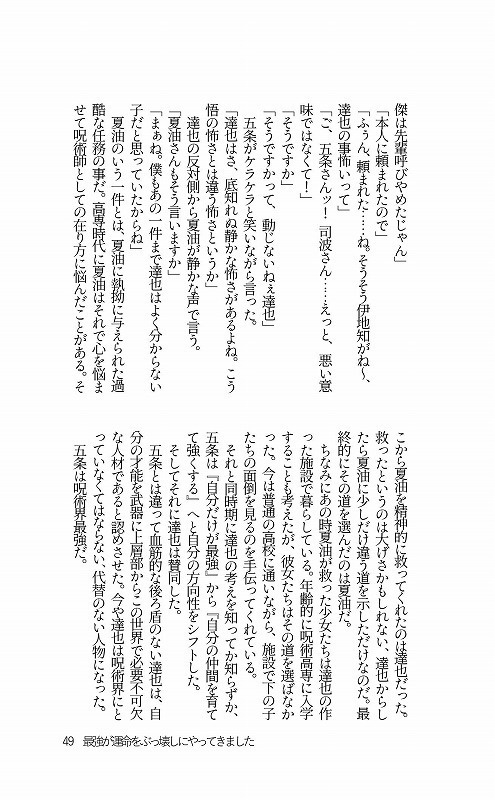 傑は先輩呼びやめたじゃん」
「本人に頼まれたので」
「ふぅん、頼まれた……ね。そうそう伊地知がね～、
達也の事怖いって」
「ご、五条さんッ！ 司波さん……えっと、悪い意
味ではなくて！」
「そうですか」
「そうですかって、動じないねぇ達也」
　五条がケラケラと笑いながら言った。
「達也はさ、底知れぬ静かな怖さがあるよね。こう
悟の怖さとは違う怖さというか」
　達也の反対側から夏油が静かな声で言う。
「夏油さんもそう言いますか」
「まぁね。僕もあの一件まで達也はよく分からない
子だと思っていたからね」
　夏油のいう一件とは、夏油に執拗に与えられた過
酷な任務の事だ。高専時代に夏油はそれで心を悩ま
せて呪術師としての在り方に悩んだことがある。そ
こから夏油を精神的に救ってくれたのは達也だった。
救ったというのは大げさかもしれない、達也からし
たら夏油に少しだけ違う道を示しただけなのだ。最
終的にその道を選んだのは夏油だ。
　ちなみにあの時夏油が救った少女たちは達也の作
った施設で暮らしている。年齢的に呪術高専に入学
することも考えたが、彼女たちはその道を選ばなか
った。今は普通の高校に通いながら、施設で下の子
たちの面倒を見るのを手伝ってくれている。
　それと同時期に達也の考えを知ってか知らずか、
五条は『自分だけが最強』から『自分の仲間を育て
て強くする』へと自分の方向性をシフトした。
　そしてそれに達也は賛同した。
　五条とは違って血筋的な後ろ盾のない達也は、自
分の才能を武器に上層部からこの世界で必要不可欠
な人材であると認めさせた。今や達也は呪術界にと
っていなくてはならない、代替のない人物になった。
　五条は呪術界最強だ。
49 最強が運命をぶっ壊しにやってきました